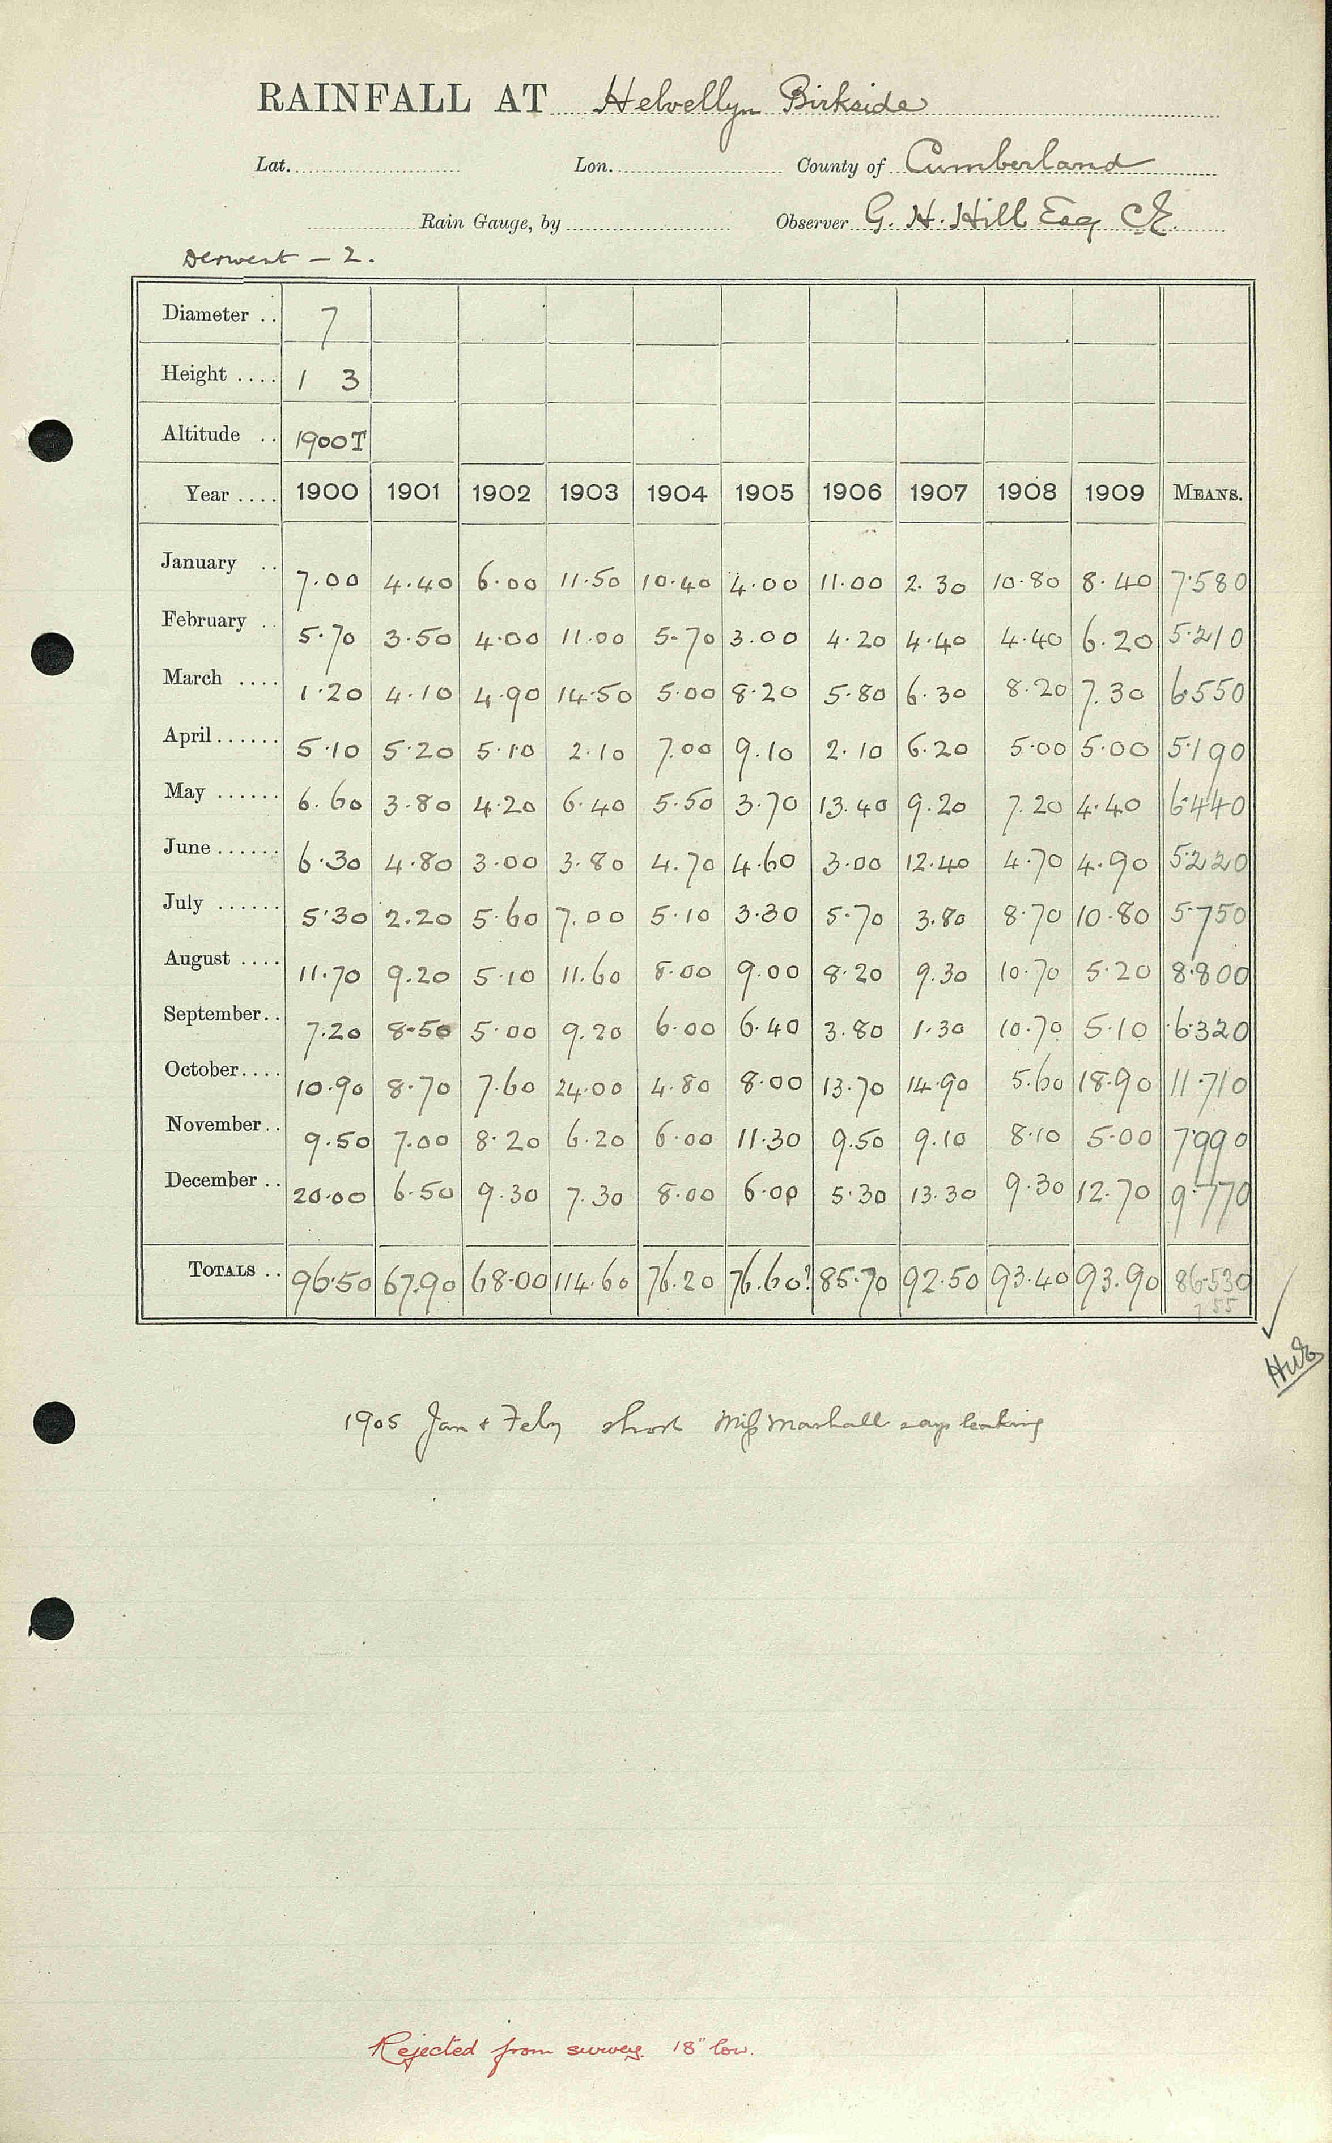 RAINFALL AT Helvellyn Birkside
Lat. Lon. County of Cumberland
Rain Gauge, by Observer G. H. Hill Esq C.E.
Derwent - 2.
Diameter .. 7
Height .... 1 3
Altitude .. 1900T
Year .... 1900 1901 1902 1903 1904 1905 1906 1907 1908 1909 MEANS.
January .. 7.00 4.40 6.00 11.50 10.40 4.00 11.00 2.30 10.80 8.40 7.580
February .. 5.70 3.50 4.00 11.00 5.70 3.00 4.20 4.40 4.40 6.20 5.210
March .... 1.20 4.10 4.90 14.50 5.00 8.20 5.80 6.30 8.20 7.30 6.550
April...... 5.10 5.20 5.10 2.10 7.00 9.10 2.10 6.20 5.00 5.00 5.190
May ...... 6.60 3.80 4.20 6.40 5.50 3.70 13.40 9.20 7.20 4.40 6.440
June...... 6.30 4.80 3.00 3.80 4.70 4.60 3.00 12.40 4.70 4.90 5.220
July ...... 5.30 2.20 5.60 7.00 5.10 3.30 5.70 3.80 8.70 10.80 5.750
August .... 11.70 9.20 5.10 11.60 8.00 9.00 8.20 9.30 10.70 5.20 8.800
September.. 7.20 8.50 5.00 9.20 6.00 6.40 3.80 1.30 10.70 5.10 6.320
October.... 10.90 8.70 7.60 24.00 4.80 8.00 13.70 14.90 5.60 18.90 11.710
November.. 9.50 7.00 8.20 6.20 6.00 11.30 9.50 9.10 8.10 5.00 7.990
December .. 20.00 6.50 9.30 7.30 8.00 6.00 5.30 13.30 9.30 12.70 9.770
TOTALS .. 96.50 67.90 68.00 114.60 76.20 76.60? 85.70 92.50 93.40 93.90 86.530
1905 Jan & Feby short Miss Marshall says leaking
Rejected from survey. 18" low.